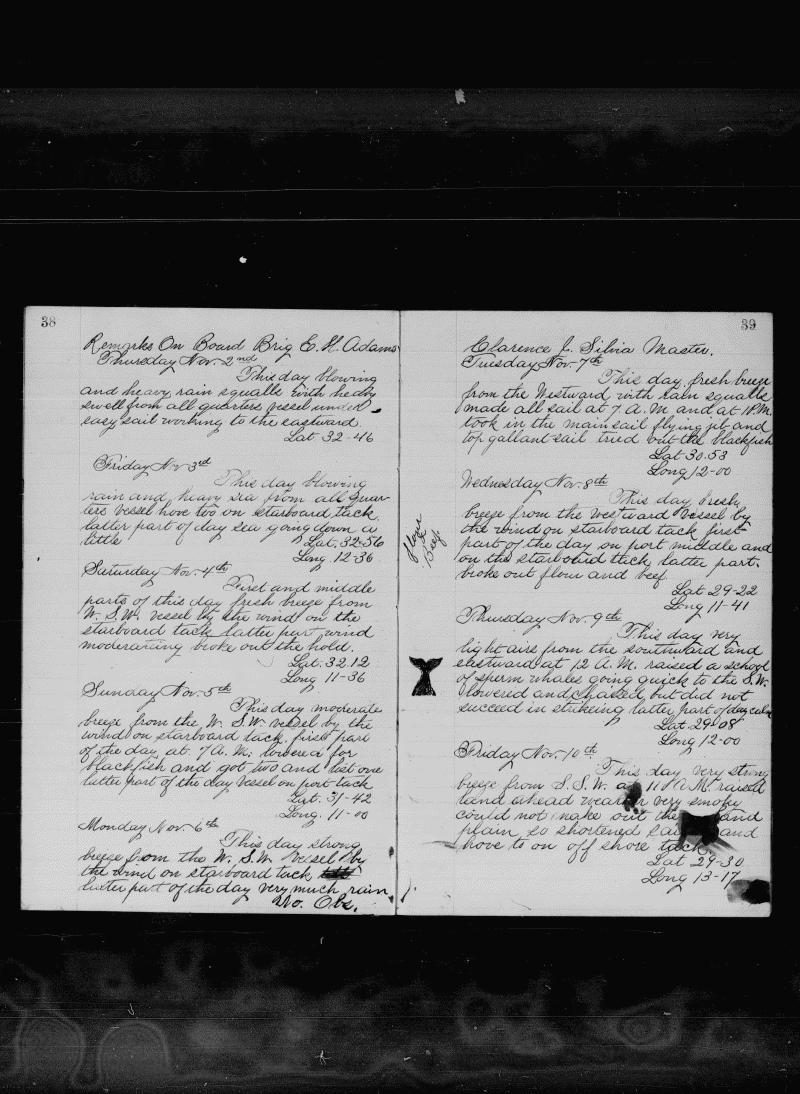 38
Remarks On Board Brig E. H. Adams
Thursday Nov. 2nd
This day blowing
and heavy rain squalls with heavy
swell from all quarters vessel under
easy sail working to the eastward.
Lat 32-46
Friday Nov 3rd
This day blowing
rain and heavy sea from all quar-
ters vessel hove too on starboard tack
latter part of day sea going down a
little Lat. 32-56
Long. 12-36
Saturday Nov. 4th
First and middle
parts of this day fresh breeze from
W. S.W. vessel by the wind on the
starboard tack latter part wind
moderarting broke out the hold.
Lat. 32.12
Long 11-36
Sunday Nov. 5th
This day moderate
breeze from the W. S.W. vessel by the
wind on starboard tack first part
of the day at 7 A.M. lowered for
blackfish and got two and lost one
latter part of the day vessel on port tack
Lat. 31-42
Long. 11-00
Monday Nov. 6th
This day strong
breeze from the W. S.W. vessel by
the wind on starboard tack
latter part of the day very much rain
No. Obs.
39
Clarence J. Silvia Master.
Tuesday Nov. 7th
This day fresh breeze
from the Westward with rain squalls
made all sail at 7 A.M and at 1 P.M.
took in the mainsail flying jib and
top gallant sail tried out the blackfish
Lat 30.53
Long 12-00
Wednesday Nov. 8th
This day fresh
breeze from the westward vessel by
the wind on starboard tack first
part of the day on port middle and
on the starboard tack latter part.
broke out flour and beef.
Lat 29-22
Long 11-41
Flour
&
Beef
Thursday Nov. 9th
This day very
light airs from the southward and
eastward at 12 A.M. raised a school
of sperm whales going quick to the S.W.
lowered and chased but did not
succeed in strikeing latter part of day calm
Lat 29-08
Long 12-00
Friday Nov. 10th
This day very strong
breeze from S.S.W. at 11 A.M. raised
land ahead weather very smoky
could not make out the land
plain, so shortened sail and
hove to on off shore tack.
Lat 29-30
Long 13-17